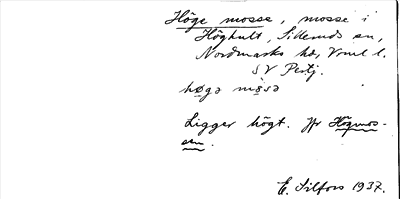 Höge mosse, mosse i
Höghult, Silleruds sn,
Nordmarks hd, Vrml l.
SV Pertj.
høgə mɵsə
Ligger högt. Jfr Högmos-
sen.
E. Silfors 1937.